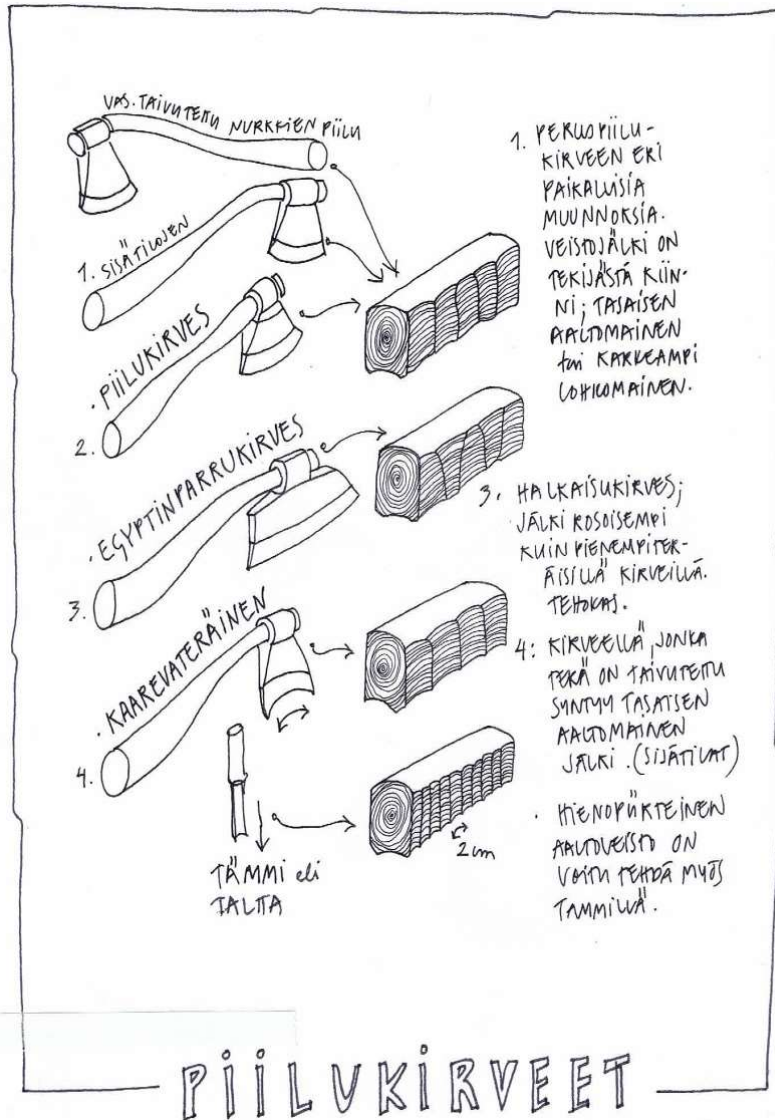 VAS. TAIVUTETTU NURKKIEN PIILU
1. SISÄTILOJEN
. PIILUKIRVES
2.
. EGYPTINPARRUKIRVES
3.
. KAAREVATERÄINEN
4.
TÄMMI eli
TALTTA
2cm
1. PERUSPIILU-
KIRVEEN ERI
PAIKALLISIA
MUUNNOKSIA.
VEISTOJÄLKI ON
TEKIJÄSTÄ KIIN-
NI; TASAISEN
AALTOMAINEN
tai KARKEAMPI
LOHKOMAINEN.
3. HALKAISUKIRVES;
JÄLKI ROSOISEMPI
KUIN PIENEMPITER-
ÄISILLÄ KIRVEILLÄ.
TEHOKAS.
4: KIRVEELLÄ, JONKA
TERÄ ON TAIVUTETTU
SYNTYY TASAISEN
AALTOMAINEN
JÄLKI. (SISÄTILAT)
. HIENOPIIRTEINEN
AALTOVEISTO ON
VOITU TEHDÄ MYÖS
TAMMILLÄ.
PIILUKIRVEET